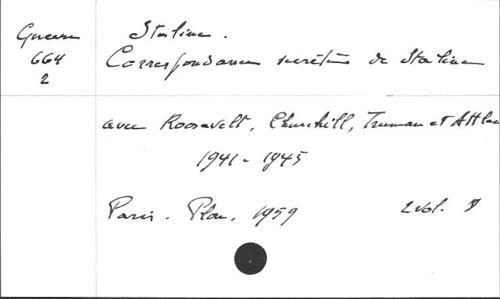 Guerre Staline.
664 Correspondance secrète de Staline
2
avec Roosevelt, Churchill, Truman et Attlee
1941 - 1945
Paris. Plon. 1959 2 vol.